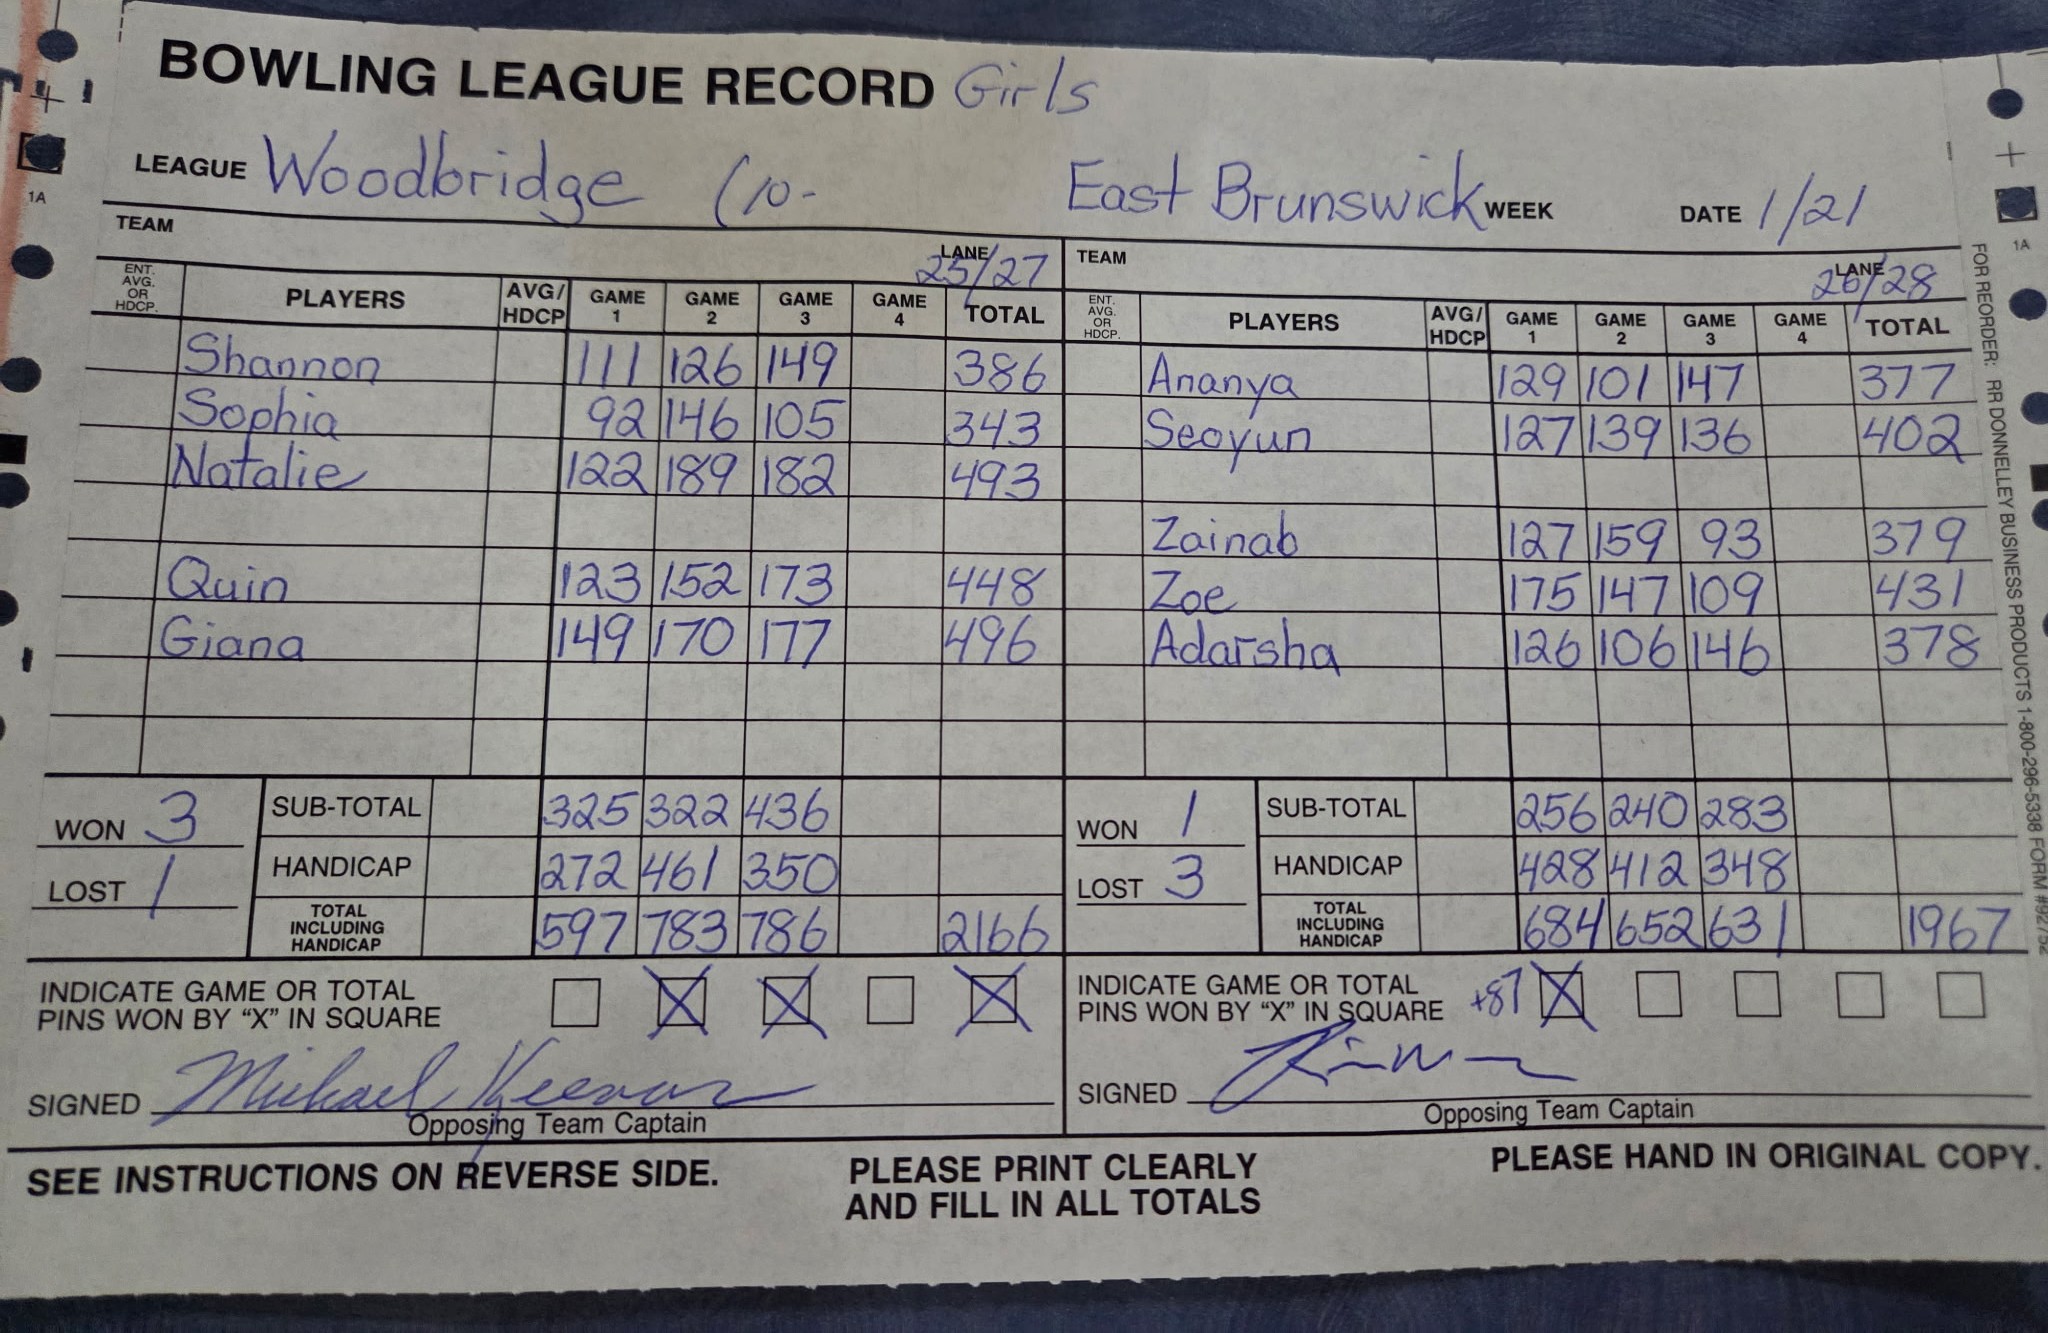 BOWLING LEAGUE RECORD Girls
LEAGUE Woodbridge (10- East Brunswick WEEK DATE 1/21
TEAM LANE 25/27 TEAM LANE 26/28
ENT. AVG. OR HDCP. PLAYERS AVG/HDCP GAME 1 GAME 2 GAME 3 GAME 4 TOTAL ENT. AVG. OR HDCP. PLAYERS AVG/HDCP GAME 1 GAME 2 GAME 3 GAME 4 TOTAL
Shannon 111 126 149 386 Ananya 129 101 147 377
Sophia 92 146 105 343 Seoyun 127 139 136 402
Natalie 122 189 182 493
Zainab 127 159 93 379
Quin 123 152 173 448 Zoe 175 147 109 431
Giana 149 170 177 496 Adarsha 126 106 146 378
WON 3 SUB-TOTAL 325 322 436 WON 1 SUB-TOTAL 256 240 283
LOST 1 HANDICAP 272 461 350 LOST 3 HANDICAP 428 412 348
TOTAL INCLUDING HANDICAP 597 783 786 2166 TOTAL INCLUDING HANDICAP 684 652 631 1967
INDICATE GAME OR TOTAL X X X INDICATE GAME OR TOTAL +87 X
PINS WON BY "X" IN SQUARE PINS WON BY "X" IN SQUARE
SIGNED Michael SIGNED
Opposing Team Captain Opposing Team Captain
SEE INSTRUCTIONS ON REVERSE SIDE. PLEASE PRINT CLEARLY PLEASE HAND IN ORIGINAL COPY.
AND FILL IN ALL TOTALS
1A
1A
FOR REORDER: RR DONNELLEY BUSINESS PRODUCTS 1-800-296-5338 FORM #92752